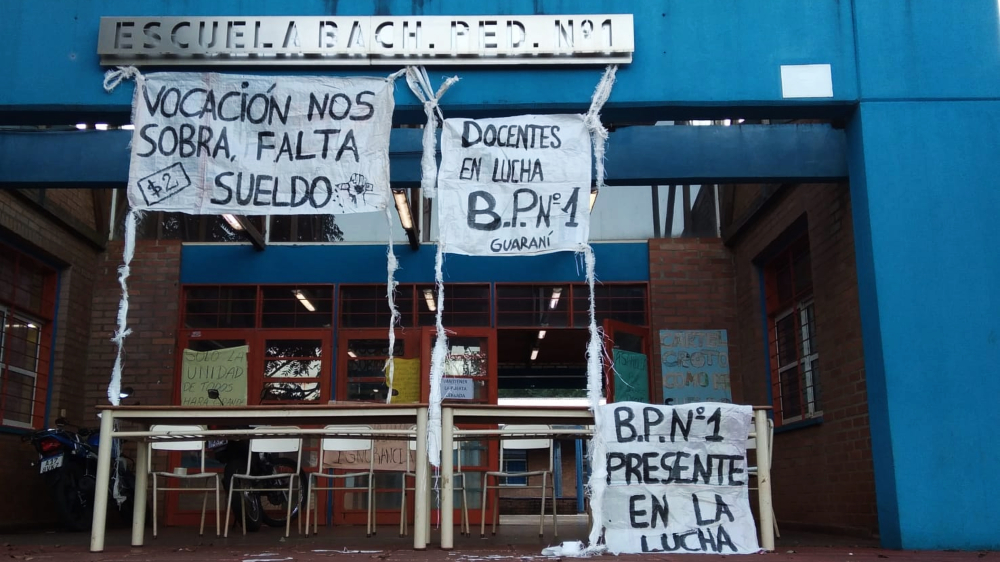 ESCUELA BACH. PED. Nº1
VOCACIÓN NOS
SOBRA, FALTA
SUELDO
$2
DOCENTES
EN LUCHA
B.P.Nº1
GUARANÍ
SOLO LA
UNIDAD
DE TODOS
B.P.Nº1
PRESENTE
EN LA
LUCHA